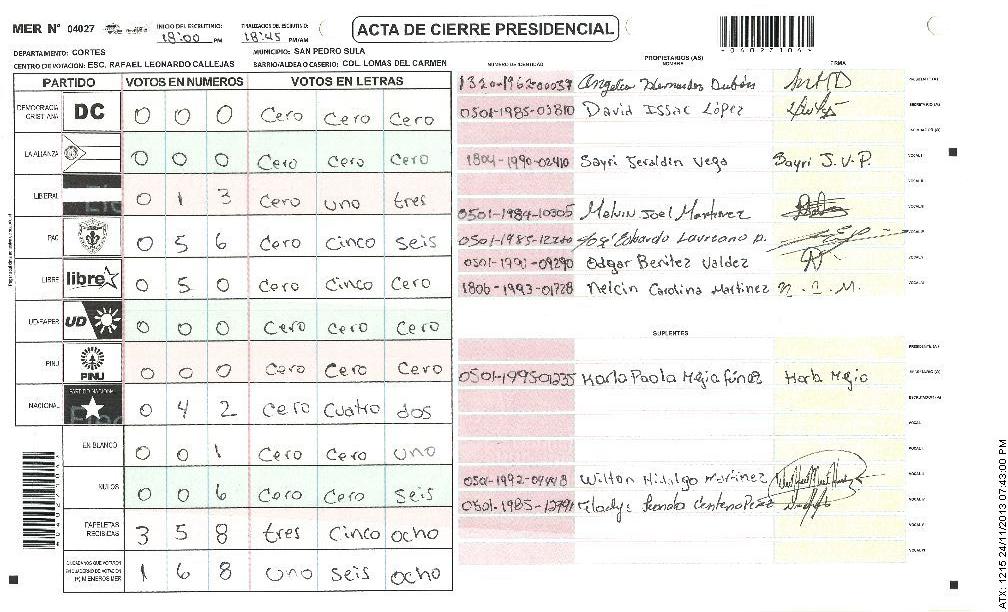 MER N° 04027
INICIO DEL ESCRUTINIO: 18:00 PM
FINALIZACION DEL ESCRUTINIO: 18:45 PM/AM
ACTA DE CIERRE PRESIDENCIAL
DEPARTAMENTO: CORTES
MUNICIPIO: SAN PEDRO SULA
CENTRO DE VOTACION: ESC. RAFAEL LEONARDO CALLEJAS
BARRIO/ALDEA O CASERIO: COL. LOMAS DEL CARMEN
PARTIDO VOTOS EN NUMEROS VOTOS EN LETRAS
DEMOCRACIA CRISTIANA DC 0 0 0 Cero Cero Cero
LA ALIANZA 0 0 0 Cero Cero Cero
LIBERAL 0 1 3 Cero uno tres
PAC 0 5 6 Cero Cinco seis
LIBRE libre 0 5 0 Cero Cinco Cero
UD-FAPER UD 0 0 0 Cero Cero Cero
PINU PINU 0 0 0 Cero Cero Cero
NACIONAL PARTIDO NACIONAL 0 4 2 Cero Cuatro dos
EN BLANCO 0 0 1 Cero Cero uno
NULOS 0 0 6 Cero Cero Seis
PAPELETAS RECIBIDAS 3 5 8 tres Cinco ocho
CIUDADANOS QUE VOTARON 1 6 8 Uno Seis ocho
PROPIETARIOS (AS)
NUMERO DE IDENTIDAD NOMBRE FIRMA
Angelica Hernandez Dubón
0501-1985-03810 David Issac López
1804-1990-02410 Sayri Jeraldin Vega Sayri J. V. P.
0501-1984-10305 Melvin Joel Martinez
José Eduardo Laureano p.
Edgar Benitez Valdez
1806-1993-01728 Nelcin Carolina Martinez N. C. M.
SUPLENTES
0501-1995-01235 Karla Paola Mejia Fúnez Karla Mejia
Wilton Hidalgo Martinez
ATX: 1215 24/11/2013 07:43:00 PM